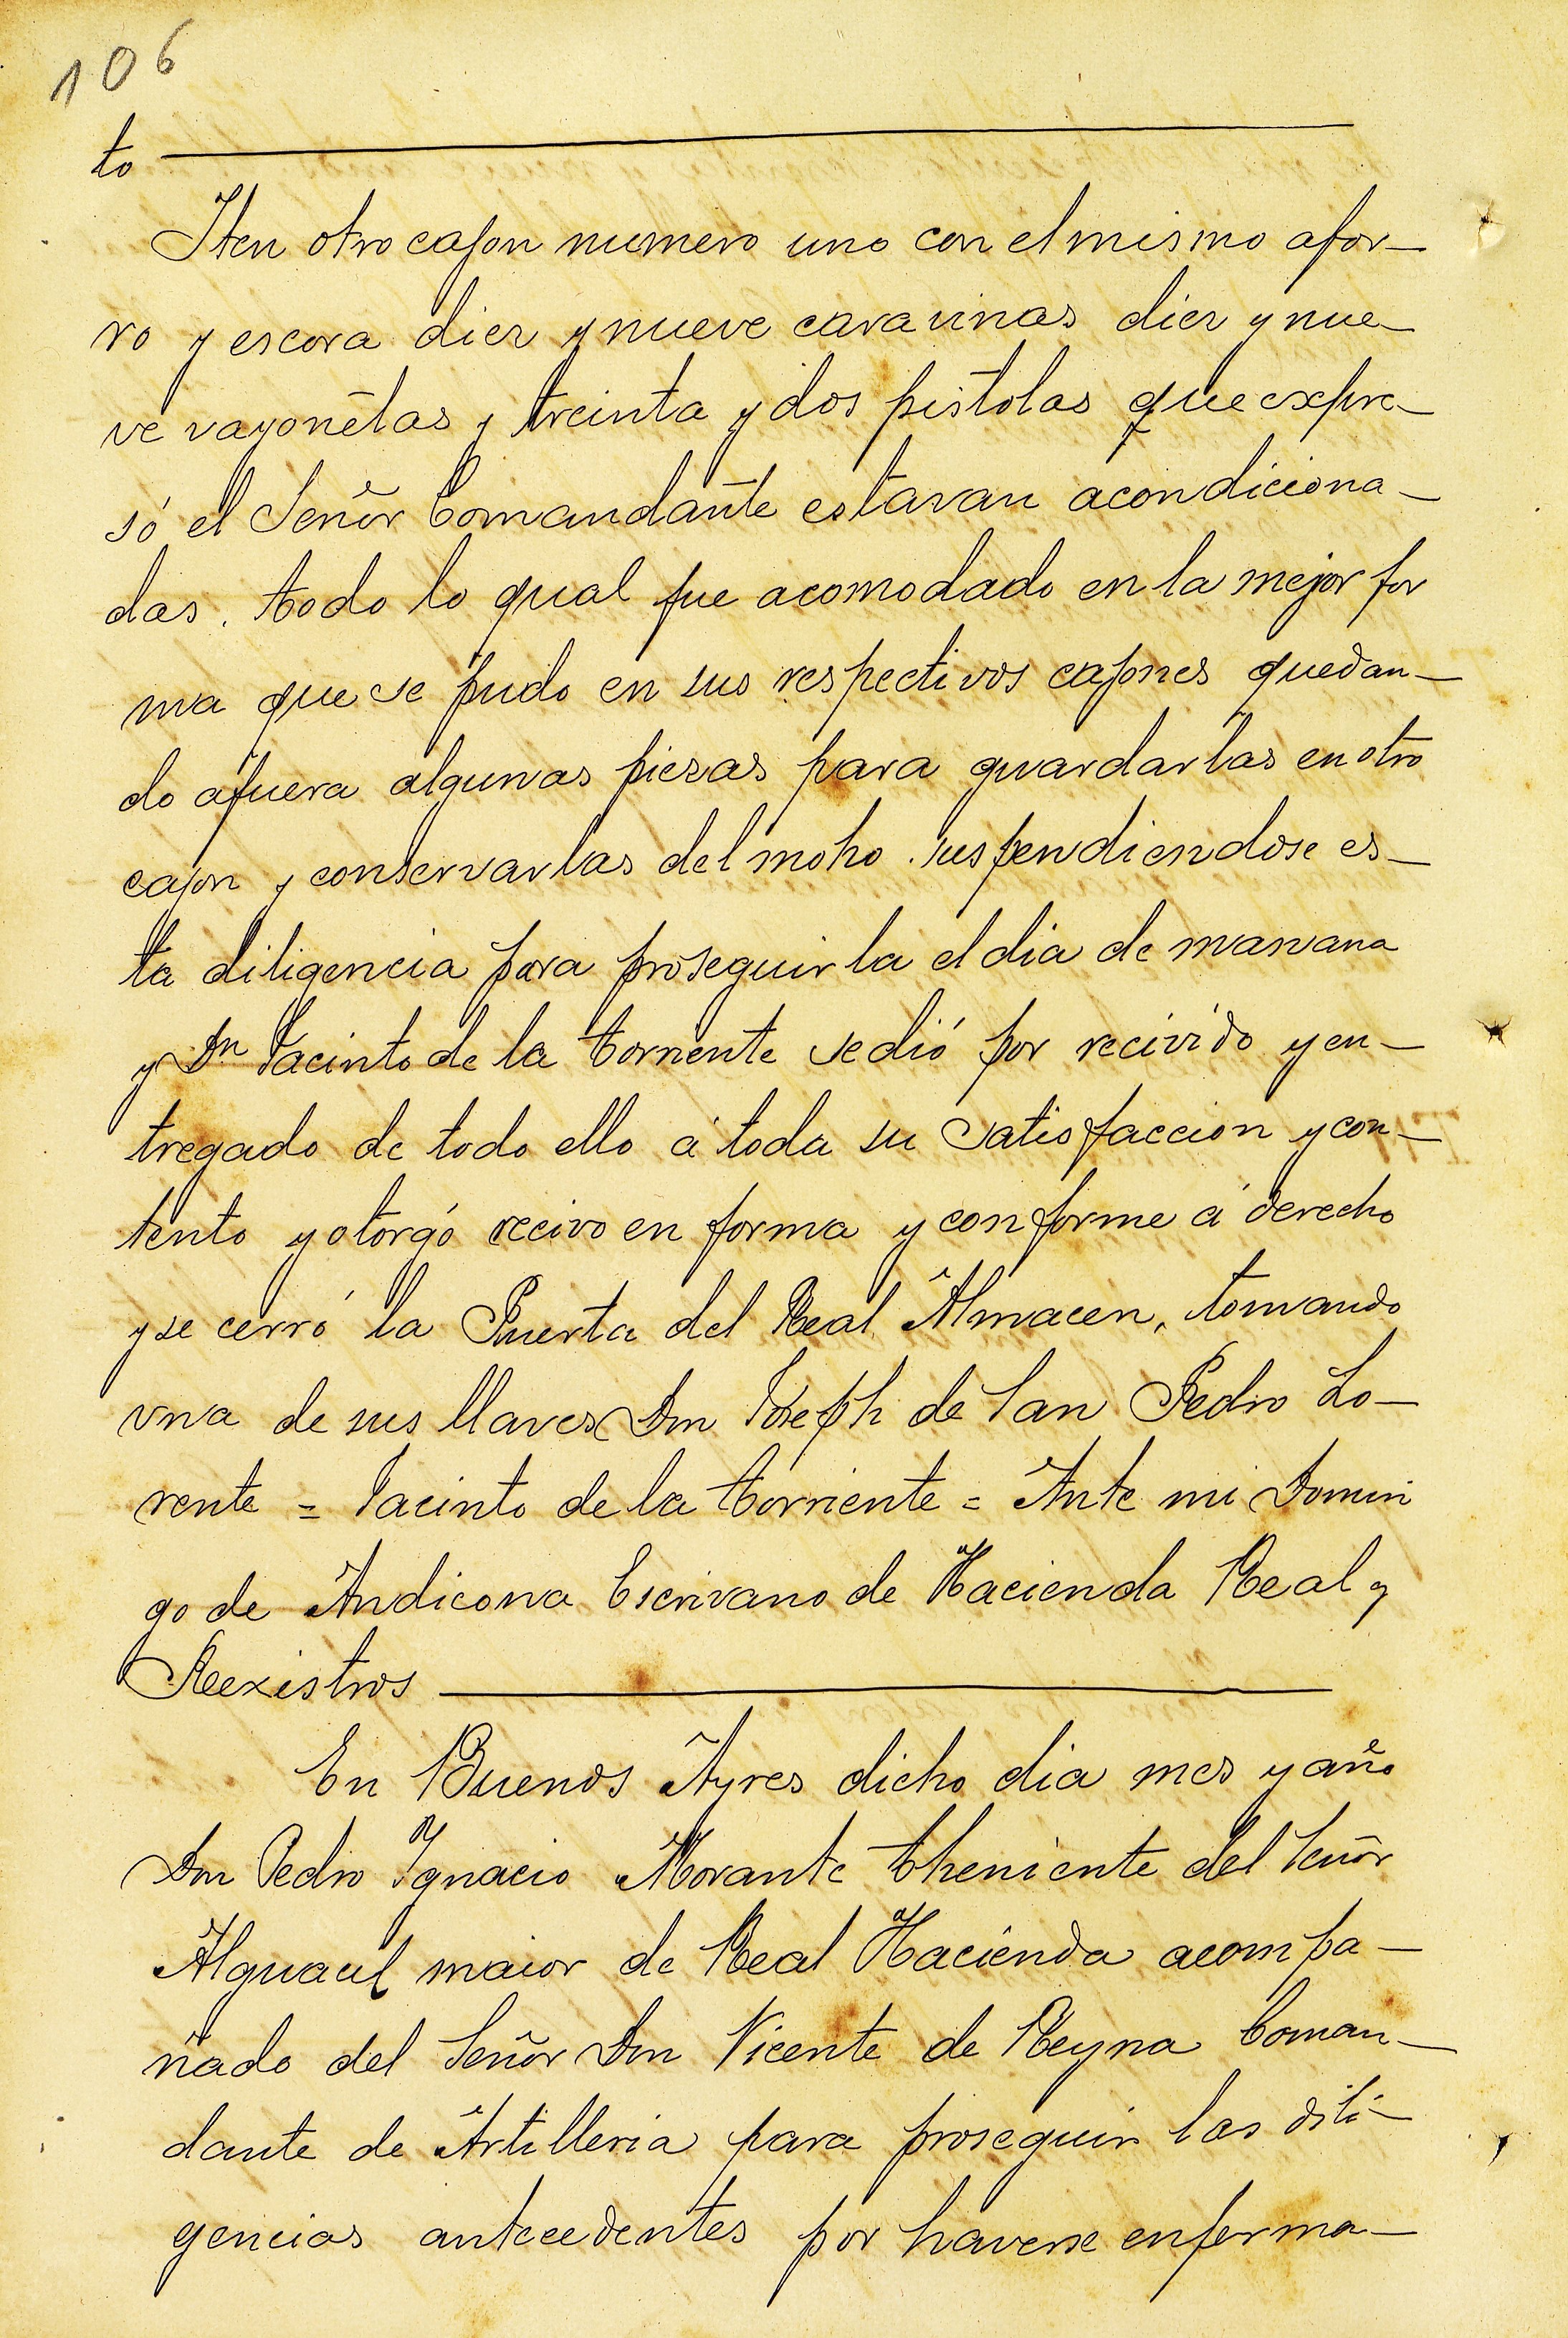 106
to
Iten otro cajon numero uno con el mismo afor-
ro y escora diez y nueve caravinas diez y nue-
ve vayonetas y treinta y dos pistolas que expre-
só el Señor Comandante estavan acondiciona-
das. todo lo qual fue acomodado en la mejor for
ma que se pudo en sus respectivos cajones quedan-
do afuera algunas piezas para guardarlas en otro
cajon y conservarlas del moho. suspendiendose es-
ta diligencia para proseguirla el dia de manana
y Dn Jacinto de la Torriente se dió por recivido y en-
tregado de todo ello á toda su satisfaccion y con-
tento y otorgó recivo en forma y conforme á derecho
y se cerró la Puerta del Real Almacen, tomando
una de sus llaves Don Joseph de San Pedro Lo-
rente = Jacinto de la Torriente = Ante mi Domin
go de Andicona Escrivano de Hacienda Real y
Rexistros
En Buenos Ayres dicho dia mes y año
Don Pedro Ygnacio Morante theniente del Señor
Alguacil maior de Real Hacienda acompa-
ñado del Señor Don Vicente de Reyna Coman-
dante de Artilleria para proseguir las dili-
gencias antecedentes por haverse enferma-